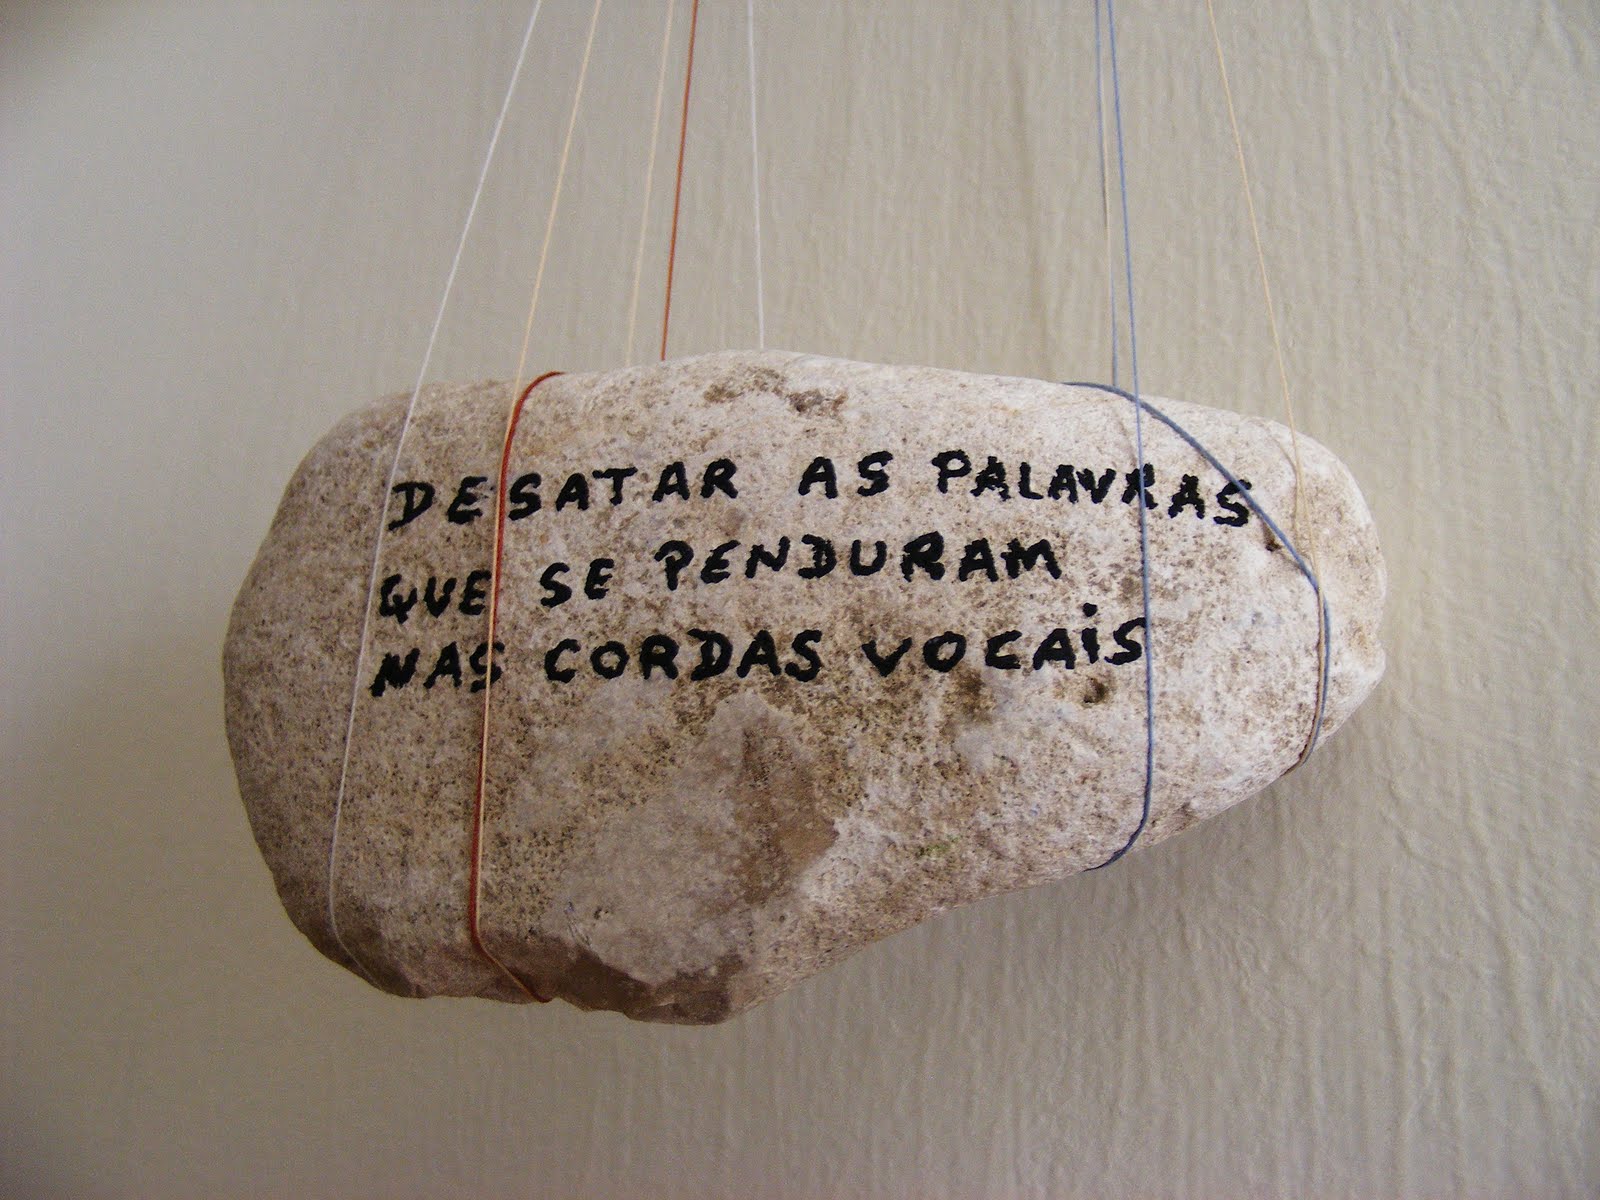 DESATAR AS PALAVRAS
QUE SE PENDURAM
NAS CORDAS VOCAIS